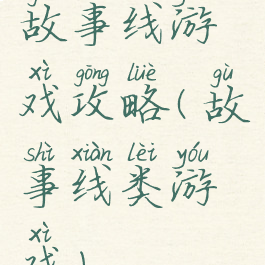 故事线游
xì gōng lüè gù
戏攻略(故
shì xiàn lèi yóu
事线类游
xì
戏)